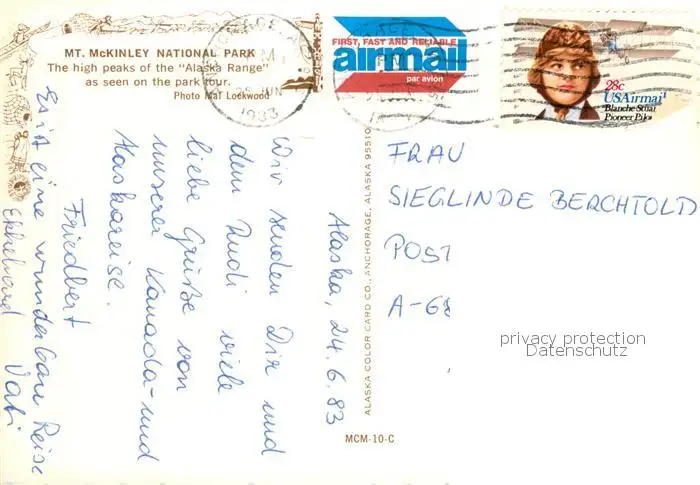 MT. McKINLEY NATIONAL PARK
The high peaks of the "Alaska Range"
as seen on the park tour.
Photo Mal Lockwood
FIRST, FAST AND RELIABLE
airmail
par avion
28c
USAirmail
Blanche Stuart
Pioneer Pilot
JUN
1983
Alaska, 24.6.83
Wir senden Dir und
dem Rudi viele
liebe Grüße von
unserer Kanada- und
Alaskareise.
Friedbert
Es ist eine wunderbare Reise
Ekkehard Vati
ALASKA COLOR CARD CO., ANCHORAGE, ALASKA 99510
MCM-10-C
FRAU
SIEGLINDE BERCHTOLD
POST
A-68
privacy protection
Datenschutz